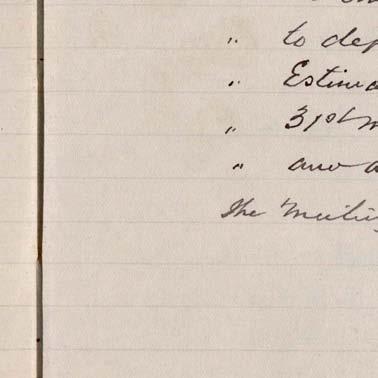 " to dep
" Estima
" 31st m
" and a
The Meetin